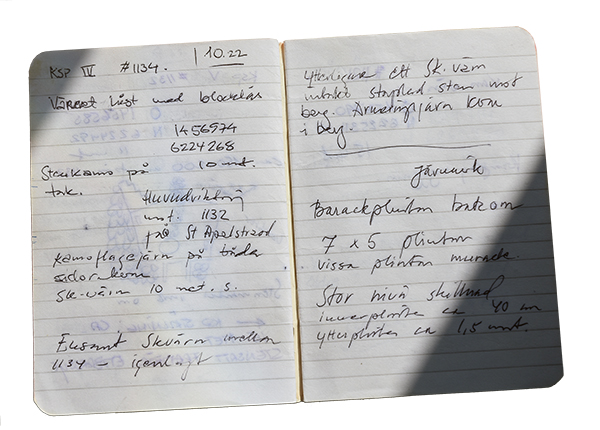 KSP IV #1134. 10.22
Värnet låst med blocklås
1456974
6224268
Stenkamo på 10 mt.
tak.
Huvudriktning
mot. 1132
från St Apelstrand
kamoflagejärn på båda
sidor kom
Sk-värn 10 met. s.
Ensamt Skvärn mellan
1134 – igenlagt
Ytterligare ett Sk. värn
inbökt staplad sten mot
berg. Armeringsjärn kom
i berg.
Järnvik
Barackplintar bakom
7 x 5 plintar
vissa plintar murade.
Stor nivå skillnad
innerplintar ca 40 cm
ytterplintar ca 1,5 mt.